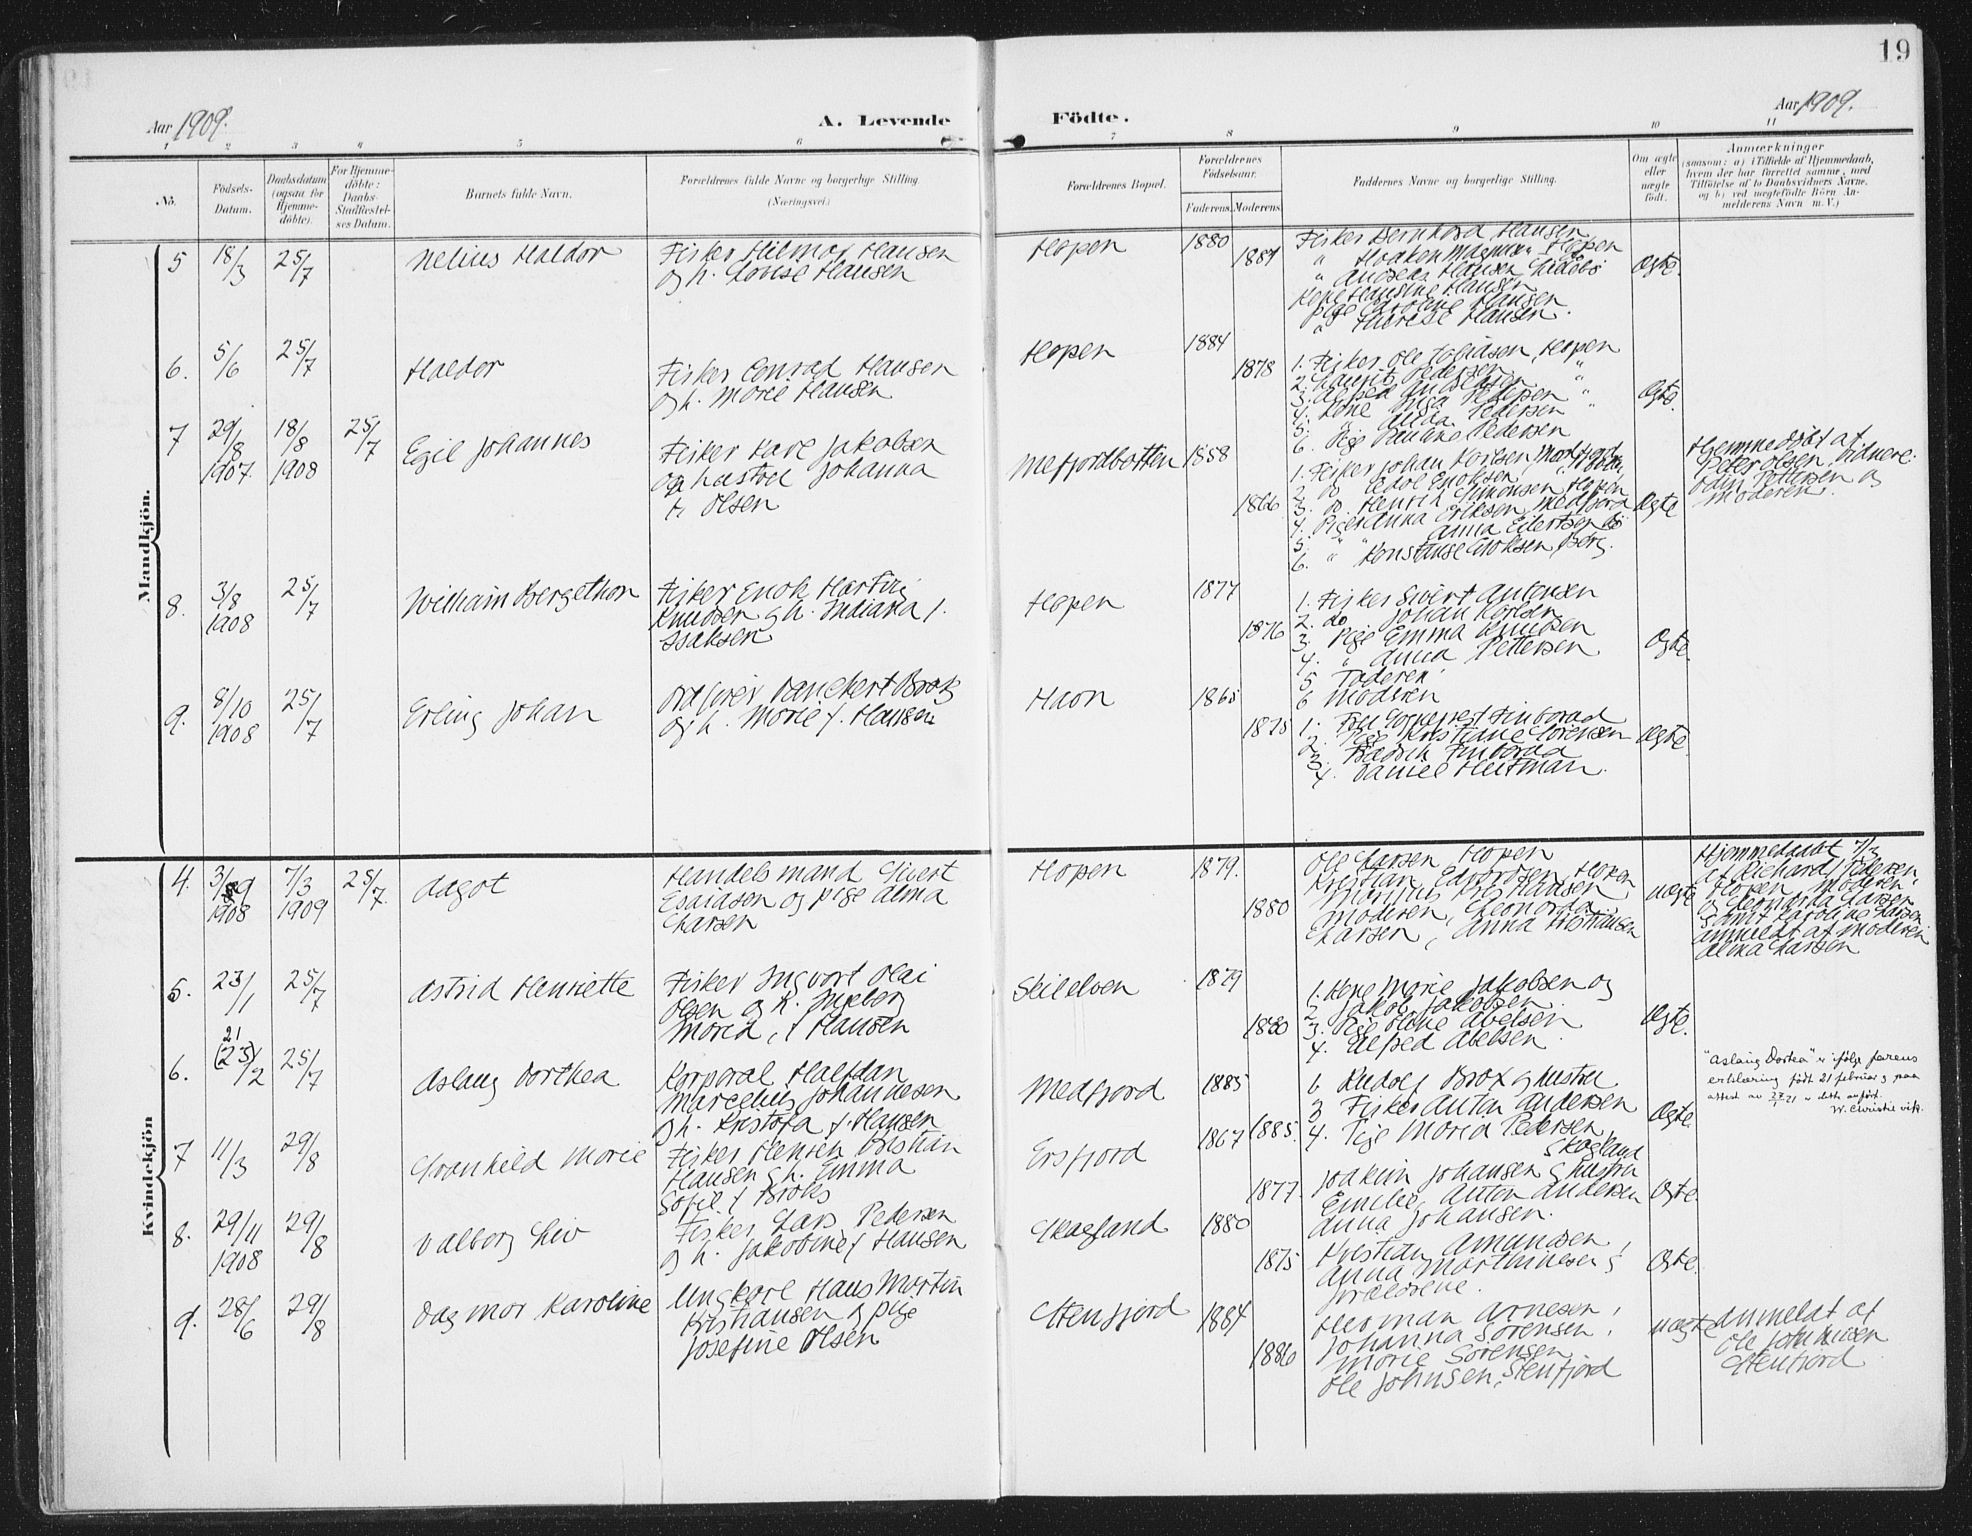 19
Aar 1909.
A. Levende
Födte.
Aar 1909.
1 2 3 4 5 6 7 8 9 10 11
No.
Födsels-Datum.
Daabsdatum (ogsaa for Hjemme-döbte).
For Hjemme-döbte: Daabs-Stadfæstel-ses Datum.
Barnets fulde Navn.
Forældrenes fulde Navne og borgerlige Stilling
(Næringsvei.)
Forældrenes Bopæl.
Forældrenes Födselsaar.
Faderens. Moderens.
Faddernes Navne og borgerlige Stilling.
Om ægte eller uægte födt.
Anmærkninger
(saasom: a) i Tilfælde af Hjemmedaab,
hvem der har forrettet samme, med
Tilföielse af to Daabsvidners Navne.
og b) ved uægtefödte Börn An-
melderens Navn m. V.)
Mandkjön.
5 18/3 25/7 Nelius Haldor
Fisker Hilmar Hansen
og h. Lovise Hansen
Hopen 1880 1884
Fisker Bernhard Hansen
" Haakon Magnus Hopen
" Andreas Hansen
Kone Hansine Hansen
Pige Caroline Hansen
" Therese Hansen.
Ægte.
6. 5/6 25/7 Haldor
Fisker Conrad Hansen
og h. Marie Hansen
Hopen 1884 1878
1. Fisker Ole Tobiasen, Hopen
2. Laurits Pedersen "
3. Alfred
4. Kone Inga Pedersen "
5. " Anna Pedersen "
6. Pige Pedersen
Ægte.
7 29/8 1907. 18/8 1908 25/7 Egil Johannes
Fisker Karl Jakobsen
og hustru Johanna
f. Olsen
Mefjordbotten 1858 1866
1. Fisker Johan Karlsen
2. do Edol Enoksen
3. do. Henrik Simonsen Hopen
4. Pige Anna Eriksen, Medfjord
5. " Anna Eilertsen
6. " Konstanse Enoksen, Berg.
Ægte
Hjemmedøbt af
Peter Olsen, vidnere:
Odin Pettersen og
Moderen.
8. 3/8 1908 25/7 William Bergethon
Fisker Enok Martin
Knudsen og h. Indiana f.
Isaksen
Hopen 1877 1876
1. Fisker Sivert Antonsen
2. do Johan Karlsen
3. Pige Emma Knudsen
4. " Anna Pettersen
5 Faderen
6 Moderen
Ægte.
9. 8/10 1908 25/7 Erling Johan
Ordfører Danckert Brox
og h. Marie f. Hansen
Havn 1865 1875
1. Fru Finborud
2. Pige Kristiane Sørensen
3. Fredrik Finborud
4. Daniel Heitman.
Ægte.
Kvindekjön
4. 3/9 1908 7/3 1909 25/7. Aagot
Handelsmand Sivert
Esaiasen og pige Alma
Larsen
Hopen 1879. 1880
Ole Larsen Hopen
Kristian Edvardsen, Hopen,
Hansen,
Moderen, Leonarda
Larsen, Anna Kristiansen
uægte
Hjemmedøbt 7/3
af Richard Pedersen,
Hopen Moderen
og Leonarda Larsen
samt Karoline Larsen
anmeldt af Moderen
Alma Larsen
5. 23/1 25/7 Astrid Henriette
Fisker Ingvart Olai
Olsen og h. Ingeborg
Maria, f Hansen
Skilelven 1879 1880
1. Kone Marie Jakobsen og
2 Jakob Jakobsen
3. Pige Abelsen
4. Alfred Abelsen.
Ægte.
6. 21 (23)/2 25/7 Aslaug Dorthea
Korporal Halfdan
Marcelius Johannesen
og h. Kristofa f. Hansen
Medfjord 1885 1885.
1. Rudolf Brox og hustru
3 Fisker Anton Andersen
4. Pige Maria Pedersen,
Skagland
Ægte.
"Aslaug Dortea" er ifølge farens
erklæring født 21 februar og paa
attest av 27/1 21 er dette anført.
W. Christie vik.
7 11/3 29/8 Granhild Marie
Fisker Hensen Kristian
Hansen og h. Emma
Sofie f Broks
Ersfjord 1867 1877.
Joakim Johansen og hustru
Emilie, Anton Andersen
Anna Johansen.
Ægte.
8. 29/11 1908 29/8 Valborg Liv
Fisker Lars Pedersen
og h. Jakobine f Hansen
Skagland 1880 1875
Kristian Amundsen,
Anna Marthinesen og
forældrene.
Ægte.
9. 28/6 29/8 Dagmar Karoline
Ungkarl Hans Martin
Kristiansen og pige
Josefine Olsen
Stenfjord 1884 1886
Herman Arnesen,
Johanna Sørensen,
Marie Sørensen
Ole Johnsen, Stenfjord
uægte
Anmeldt af
Ole Johnsen
Stenfjord